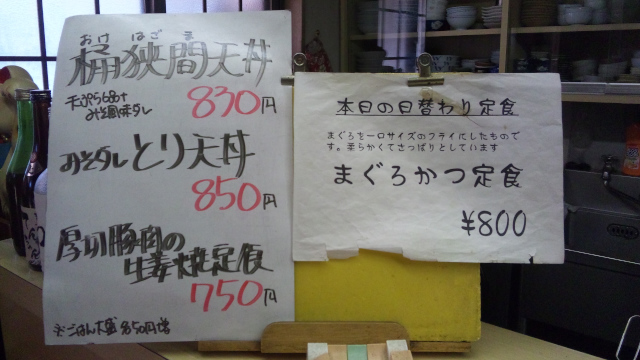 おけはざま
桶狭間天丼
みそ風味ダレ
830円
みそダレとり天丼
850円
厚切豚肉の
生姜焼定食
750円
※ごはん大盛 各50円増
本日の日替わり定食
まぐろを一口サイズのフライにしたもので
す。柔らかくてさっぱりとしています
まぐろかつ定食
¥800